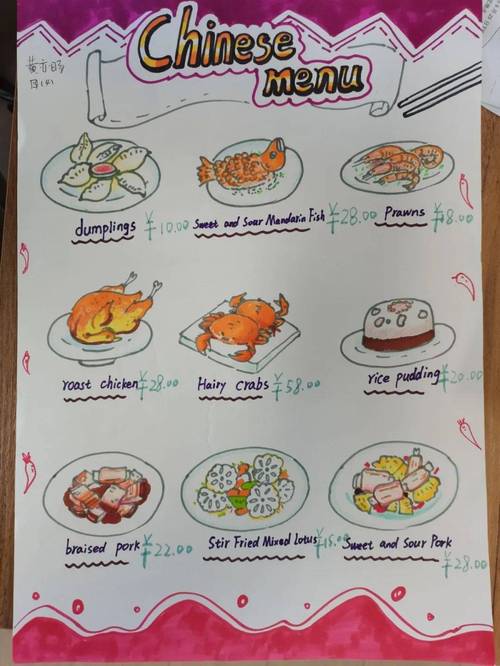 Chinese
menu
dumplings ¥10.00
Sweet and Sour Mandarin Fish ¥28.00
Prawns ¥48.00
roast chicken ¥28.00
Hairy crabs ¥58.00
rice pudding ¥20.00
braised pork ¥22.00
Stir Fried Mixed Lotus ¥15.00
Sweet and Sour Pork
¥28.00